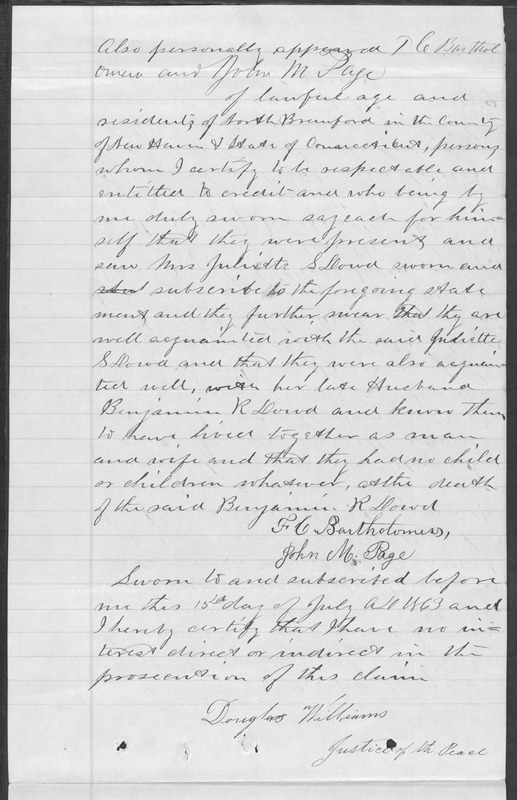 Also personally appeared F C Barthol
omew and John M Page
of lawful age and
residents of North Branford in the County
of New Haven & State of Connecticut, persons
whom I certify to be respectable and
entitled to credit and who being by
me duly sworn say each for him=
self that they were present and
saw Mrs Juliette S Dowd sworn and
subscribe to the foregoing state
ment and they further swear that they are
well acquainted with the said Juliette
S Dowd and that they were also acquain
ted well, with her late Husband
Benjamin R Dowd and know them
to have lived together as man
and wife and that they had no child
or children whatever, at the death
of the said Benjamin R Dowd
F. C Bartholomew,
John M. Page
Sworn to and subscribed before
me this 15th day of July AD 1863 and
I hereby certify that I have no in=
terest direct or indirect in the
prosecution of this claim
Douglas Williams
Justice of th Peace